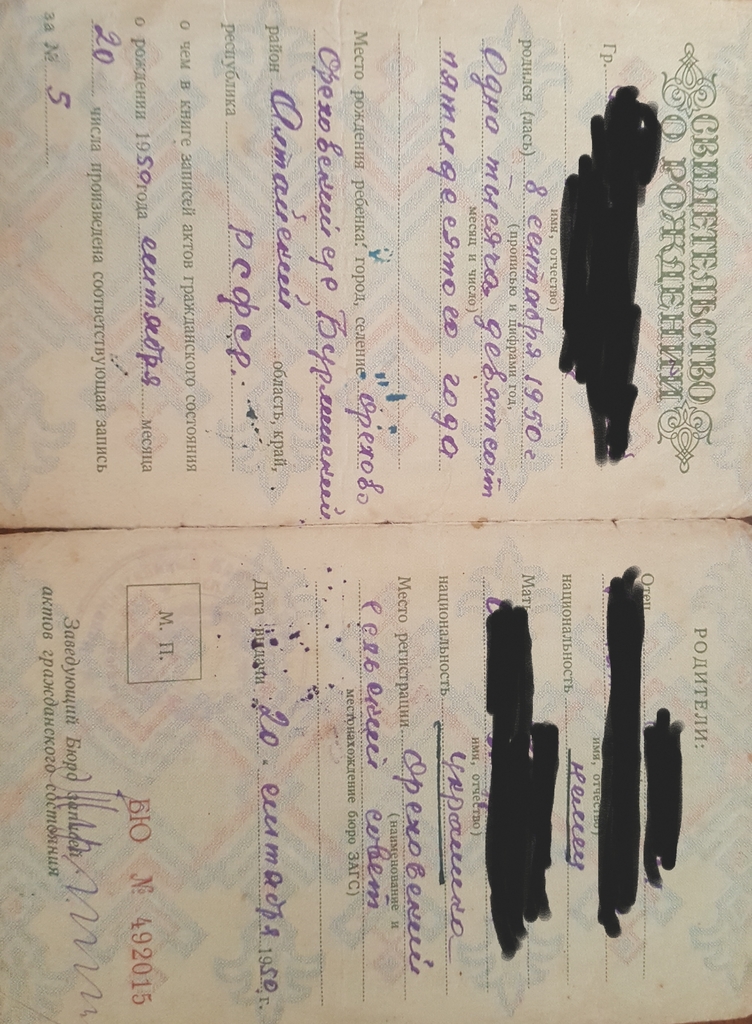 СВИДЕТЕЛЬСТВО
О РОЖДЕНИИ
Гр.
имя, отчество)
родился (лась) 8 сентября 1950 г
(прописью и цифрами год,
Одна тысяча девятсот
месяц и число)
пятидесятого года
Место рождения ребенка: город, селение Орехово
Ореховский с/с
район Алтайский область, край,
республика РСФСР.
о чем в книге записей актов гражданского состояния
о рождении 1950 года сентября месяца
20 числа произведена соответствующая запись
за № 5
РОДИТЕЛИ:
Отец
имя, отчество)
национальность немец
Мать
имя, отчество)
национальность украинка
Место регистрации Ореховский
(наименование и
сельский совет
местонахождение бюро ЗАГС)
Дата выдачи 20 " сентября 1950 г.
М. П.
БЮ № 492015
Заведующий Бюро записей
актов гражданского состояния